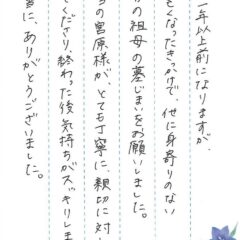 一年以上前になりますが、
亡くなったきっかけで、他に身寄りのない
の祖母の墓じまいをお願いしました。
当の宮原様が、とても丁寧に、親切に対し
てくださり、終わった後気持ちがスッキリしま
当に、ありがとうございました。